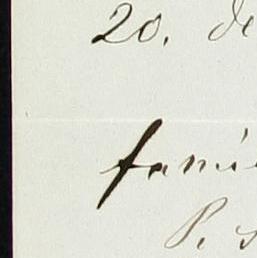 20. de
fami
P. s